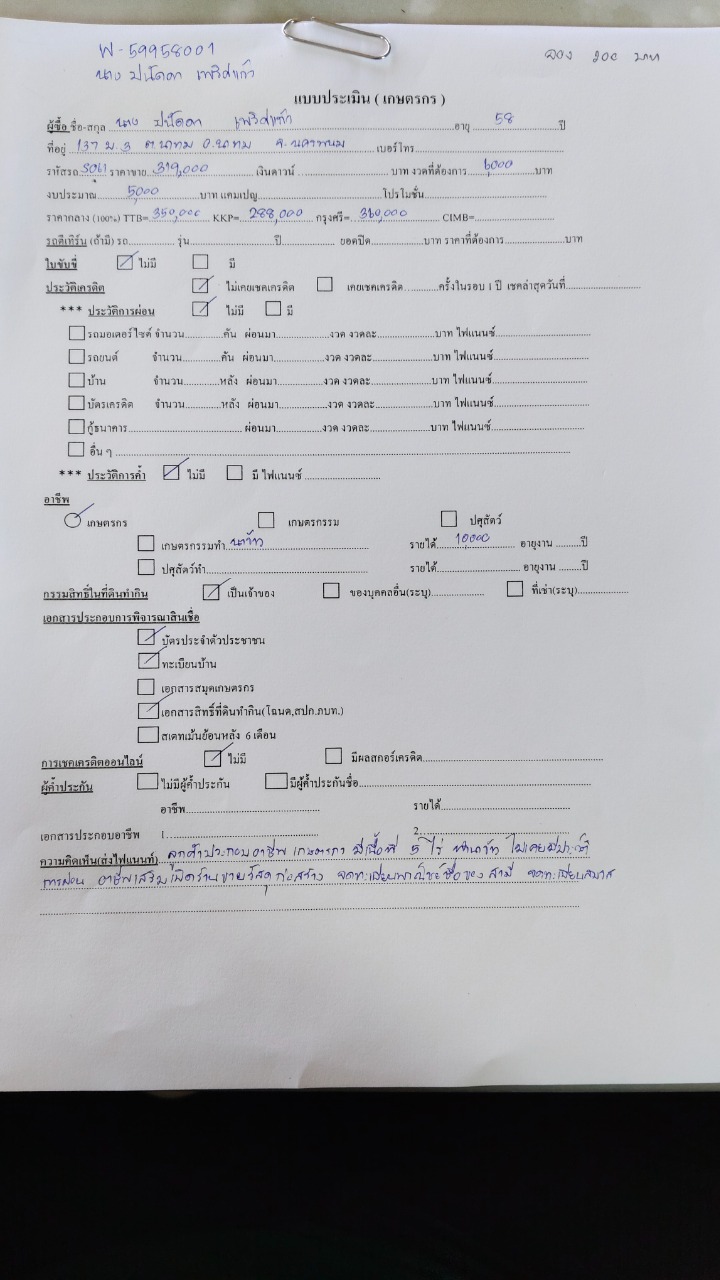 W-59958001
จอง 200 บาท
นาง ปนัดดา เพริศแก้ว
แบบประเมิน ( เกษตรกร )
ผู้ซื้อ ชื่อ-สกุล นาง ปนัดดา เพริศแก้ว อายุ 58 ปี
ที่อยู่ 137 ม.3 ต.นาทม อ.นาทม จ.นครพนม เบอร์โทร
รหัสรถ S061 ราคาขาย 319,000 เงินดาวน์ บาท งวดที่ต้องการ 6000 บาท
งบประมาณ 5000 บาท แคมเปญ โปรโมชั่น
ราคากลาง (100%) TTB= 350,000 KKP= 288,000 กรุงศรี= 360,000 CIMB=
รถตีเทิร์น (ถ้ามี) รถ รุ่น ปี ยอดปิด บาท ราคาที่ต้องการ บาท
ใบขับขี่ ไม่มี มี
ประวัติเครดิต ไม่เคยเชคเครดิต เคยเชคเครดิต ครั้งในรอบ 1 ปี เชคล่าสุดวันที่
*** ประวัติการผ่อน ไม่มี มี
รถมอเตอร์ไซค์ จำนวน คัน ผ่อนมา งวด งวดละ บาท ไฟแนนซ์
รถยนต์ จำนวน คัน ผ่อนมา งวด งวดละ บาท ไฟแนนซ์
บ้าน จำนวน หลัง ผ่อนมา งวด งวดละ บาท ไฟแนนซ์
บัตรเครดิต จำนวน หลัง ผ่อนมา งวด งวดละ บาท ไฟแนนซ์
กู้ธนาคาร ผ่อนมา งวด งวดละ บาท ไฟแนนซ์
อื่น ๆ
*** ประวัติการค้ำ ไม่มี มี ไฟแนนซ์
อาชีพ
เกษตรกร เกษตรกรรม ปศุสัตว์
เกษตรกรรมทำ นาข้าว รายได้ 10,000 อายุงาน ปี
ปศุสัตว์ทำ รายได้ อายุงาน ปี
กรรมสิทธิ์ในที่ดินทำกิน เป็นเจ้าของ ของบุคคลอื่น(ระบุ) ที่เช่า(ระบุ)
เอกสารประกอบการพิจารณาสินเชื่อ
บัตรประจำตัวประชาชน
ทะเบียนบ้าน
เอกสารสมุดเกษตรกร
เอกสารสิทธิ์ที่ดินทำกิน(โฉนด,สปก.ภบท.)
สเตทเม้นย้อนหลัง 6 เดือน
การเชคเครดิตออนไลน์ ไม่มี มีผลสกอร์เครดิต
ผู้ค้ำประกัน ไม่มีผู้ค้ำประกัน มีผู้ค้ำประกันชื่อ
อาชีพ รายได้
เอกสารประกอบอาชีพ 1 2
ความคิดเห็น(ส่งไฟแนนท์) ลูกค้าประกอบอาชีพ เกษตรกร มีเนื้อที่ 5 ไร่ ทำนาข้าว ไม่เคยมีประวัติ
การผ่อน อาชีพเสริมเปิดร้านขายวัสดุก่อสร้าง จดทะเบียนพาณิชย์ชื่อของสามี จดทะเบียนสมรส